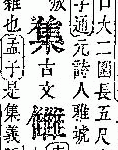 口大二圍長五尺
子通元詩人雅號
集古文
雜也孟子是集義